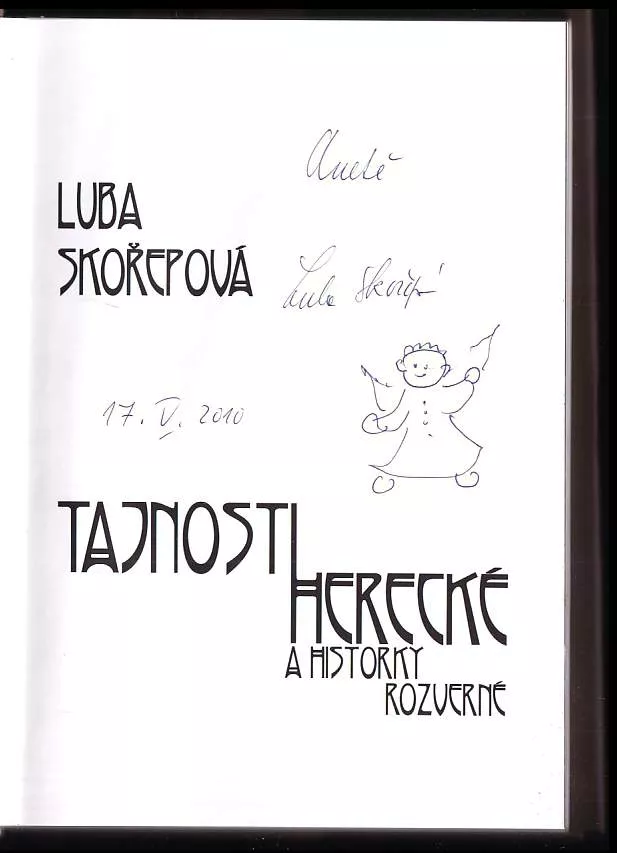 Anetě
LUBA
SKOŘEPOVÁ
Luba Skořepová
17. V. 2010
TAJNOSTI
HERECKÉ
A HISTORKY
ROZVERNÉ